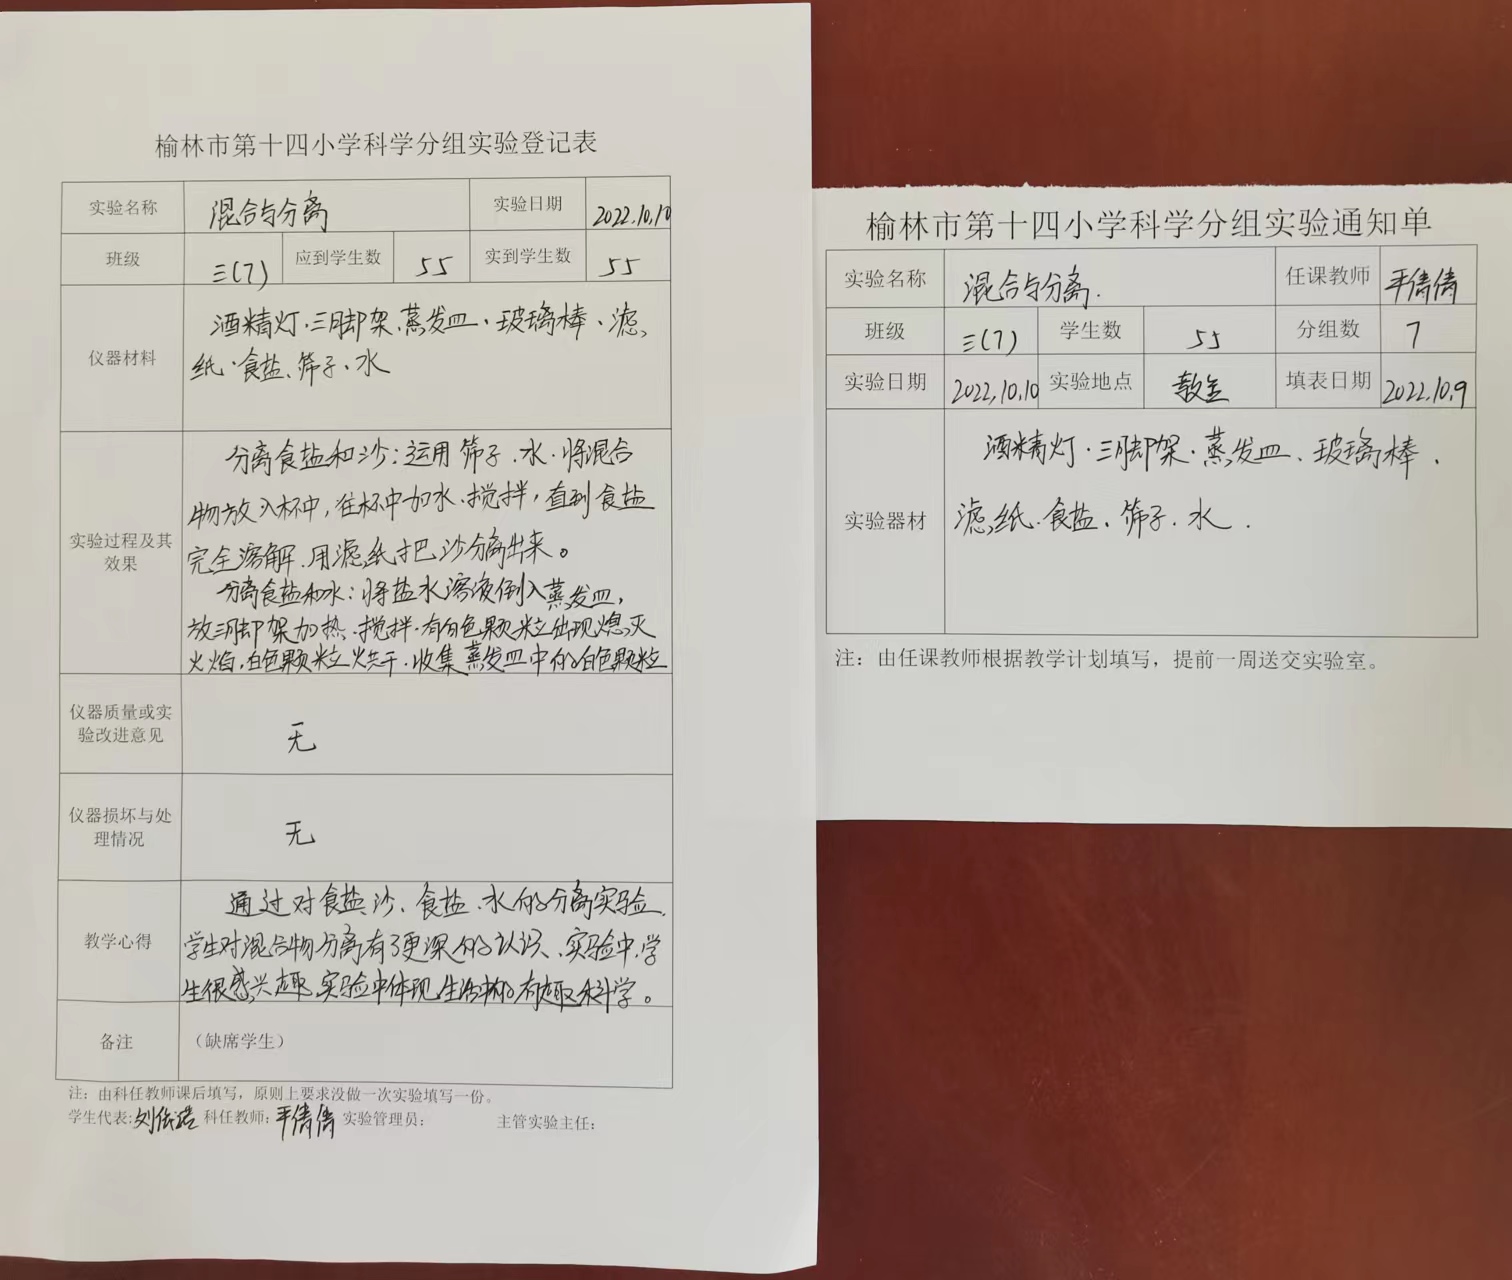 榆林市第十四小学科学分组实验登记表
实验名称 混合与分离 实验日期 2022.10.10
班级 三(7) 应到学生数 55 实到学生数 55
仪器材料
酒精灯·三脚架、蒸发皿、玻璃棒、滤
纸·食盐、筛子、水
实验过程及其
效果
分离食盐和沙:运用筛子、水·将混合
物放入杯中,往杯中加水、搅拌,直到食盐
完全溶解.用滤纸把沙分离出来。
分离食盐和水:将盐水溶液倒入蒸发皿,
放三脚架加热、搅拌·有白色颗粒出现熄灭
火焰,白色颗粒烘干·收集蒸发皿中的白色颗粒
仪器质量或实
验改进意见
无
仪器损坏与处
理情况
无
教学心得
通过对食盐沙、食盐、水的分离实验,
学生对混合物分离有了更深的认识、实验中,学
生很感兴趣,实验中体现生活中的有趣科学。
备注 (缺席学生)
注:由科任教师课后填写,原则上要求没做一次实验填写一份。
学生代表: 科任教师:平倩倩 实验管理员: 主管实验主任:
榆林市第十四小学科学分组实验通知单
实验名称 混合与分离. 任课教师 平倩倩
班级 三(7) 学生数 55 分组数 7
实验日期 2022.10.10 实验地点 教室 填表日期 2022.10.9
实验器材
酒精灯·三脚架·蒸发皿、玻璃棒.
滤纸·食盐、筛子、水.
注:由任课教师根据教学计划填写,提前一周送交实验室。